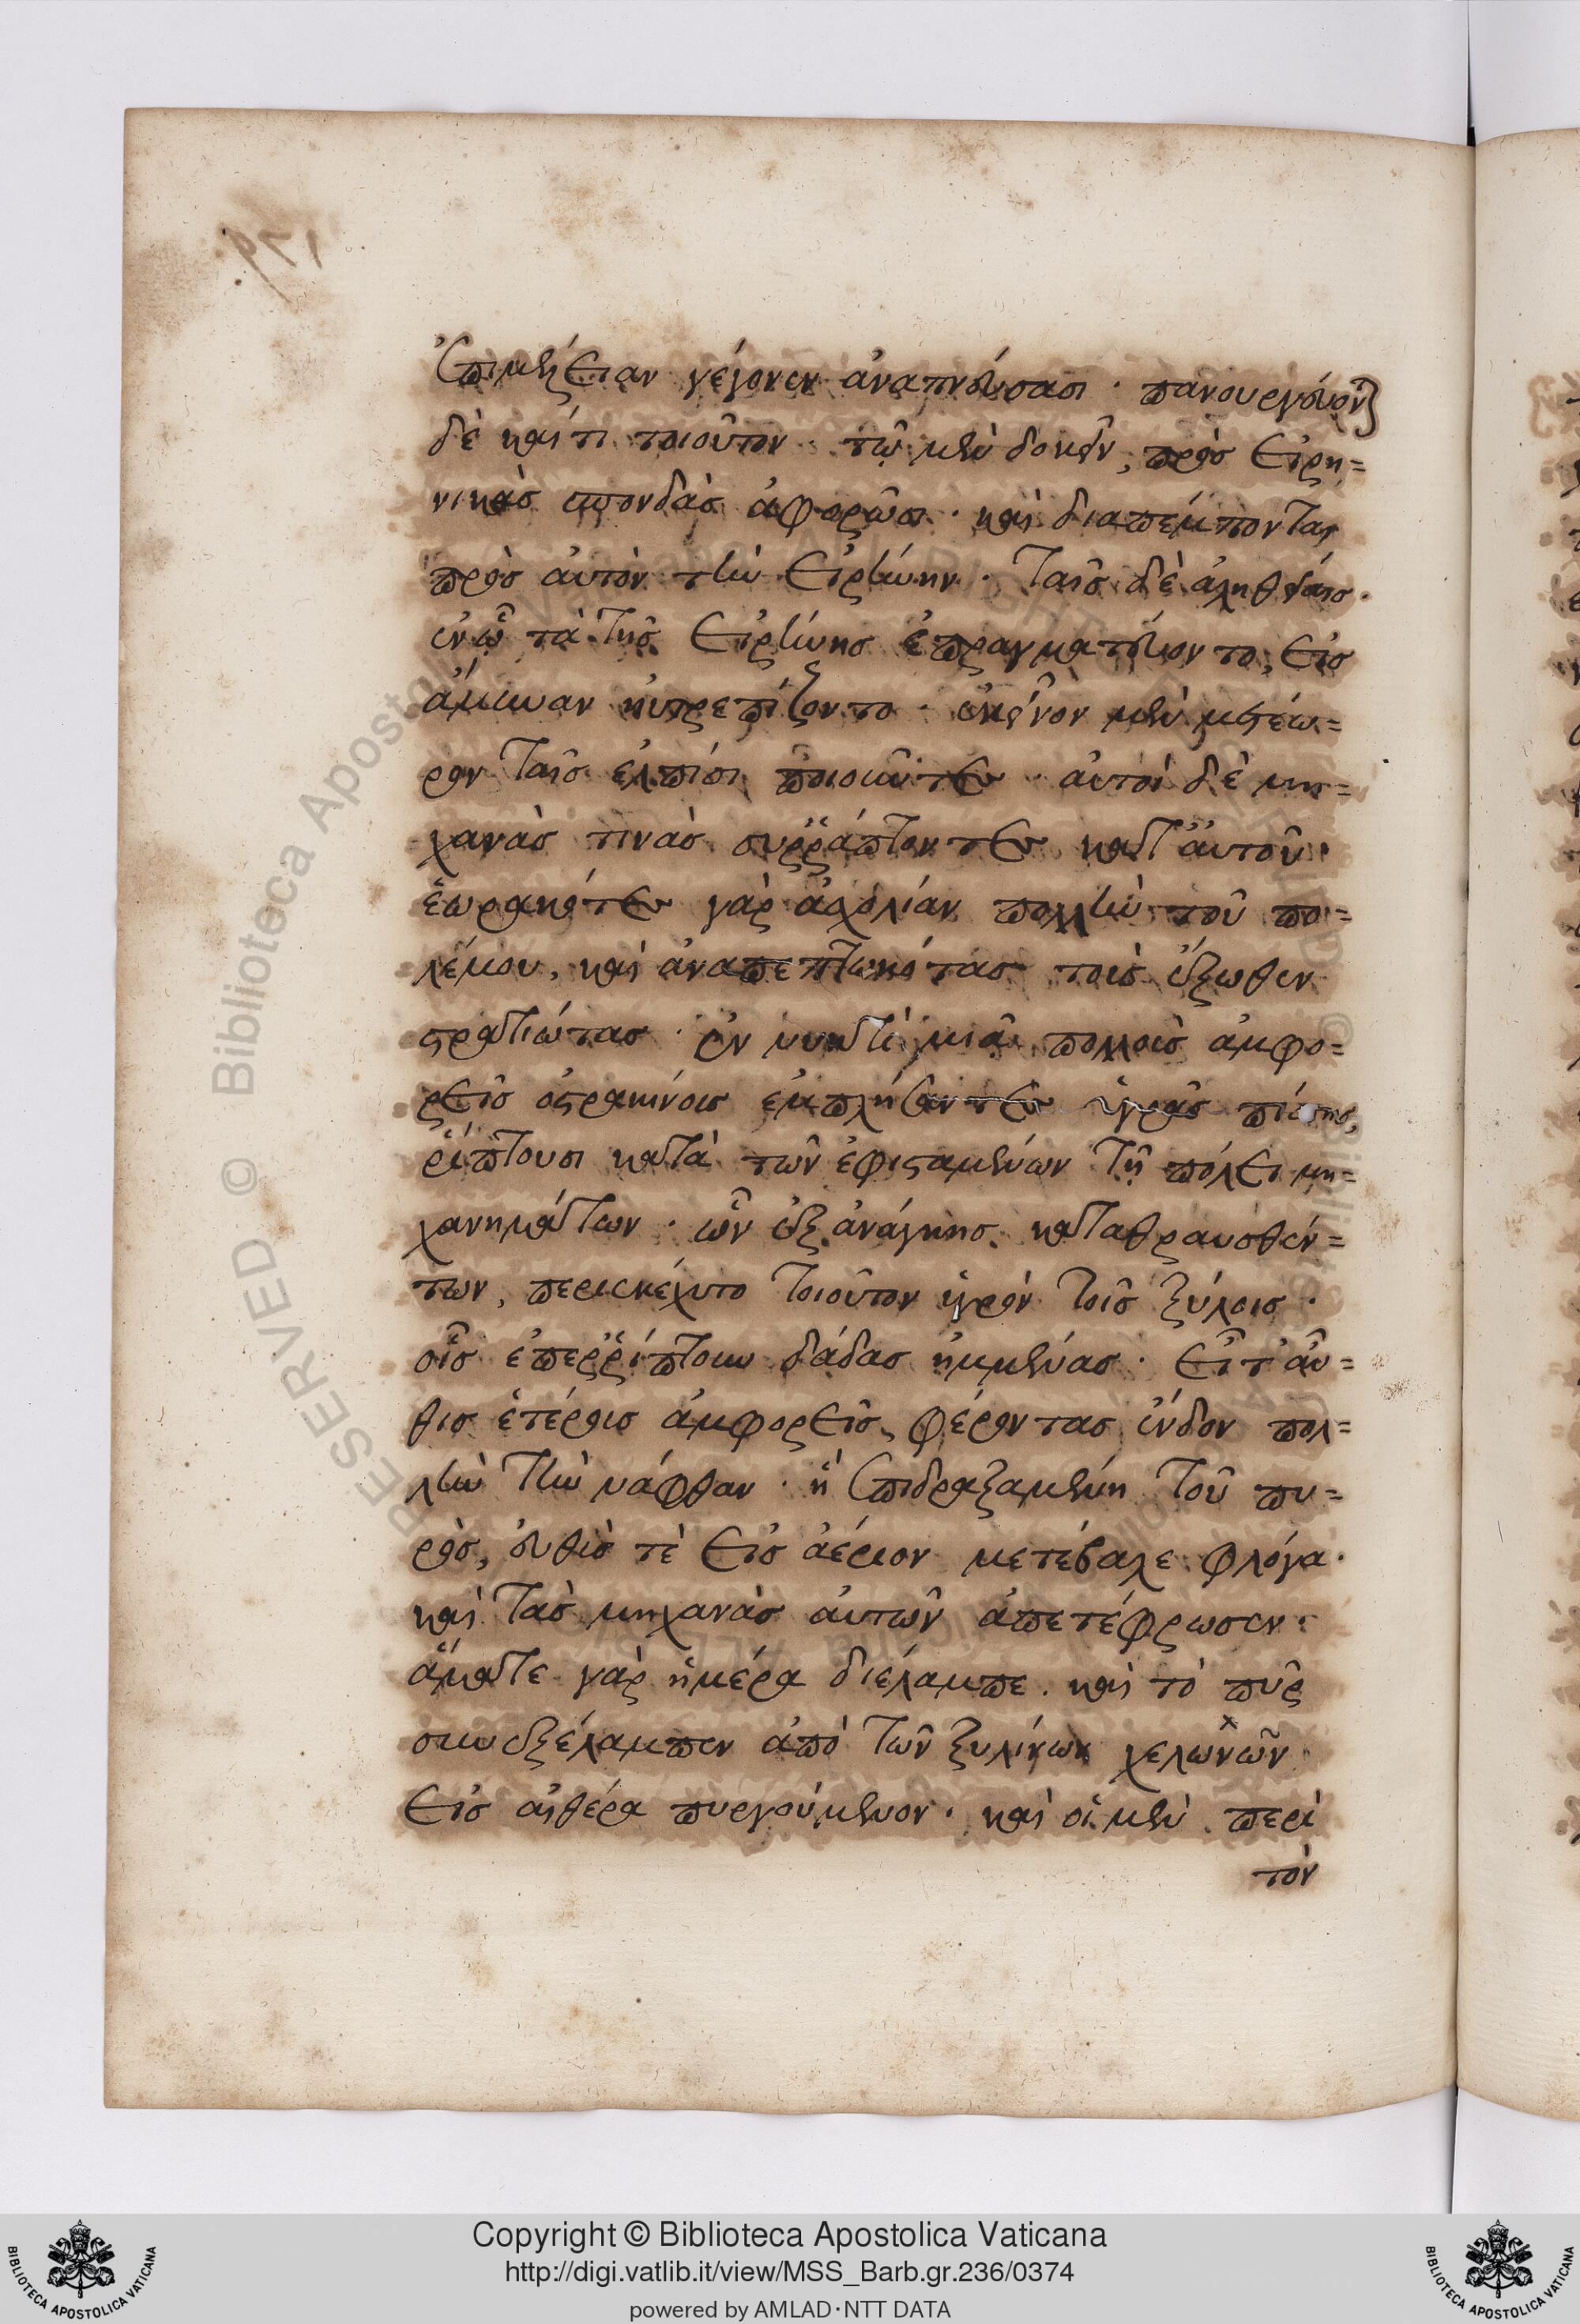 ἐπιμιξίαν γέγονεν ἀναπνεύσασι· πανουργεύον}
δὲ καί τι τοιοῦτον· τῷ μὲν δοκεῖν, πρὸς εἰρη=
νικὰς σπονδὰς ἀφορῶσι· καὶ διαπέμπονται
πρὸς αὐτὸν τὴν εἰρήνην· ταῖς δὲ ἀληθείαις·
ἐν ᾧ τὰ τῆς εἰρήνης ἐπραγματεύοντο, εἰς
ἄμυναν ηὐτρεπίζοντο· ἐκεῖνον μὲν μετέω=
ρον ταῖς ἐλπίσι ποιοῦντες· αὐτοὶ δὲ μη=
χανάς τινας συῤῥάπτοντες κατ' αὐτοῦ·
ἑωρακότες γὰρ ἀσχολίαν πολλὴν τοῦ πο=
λέμου, καὶ ἀναπεπτωκότας τοὺς ἔξωθεν
στρατιώτας· ἐν νυκτὶ μιᾷ πολλοὺς ἀμφο=
ρεῖς ὀστρακίνους ἐμπλήσαντες ὑγρᾶς πίσσης,
ῥίπτουσι κατὰ τῶν ἐφισταμένων τῇ πόλει μη=
χανημάτων· ὧν ἐξ ἀνάγκης καταθραυσθέν=
των, περιεκέχυτο τοιοῦτον ὑγρὸν τοῖς ξύλοις·
οἷς ἐπεῤῥίπτουν δάδας ἡμμένας· εἶτ' αὖ=
θις ἑτέρους ἀμφορεῖς, φέροντας ἔνδον πολ=
λὴν τὴν νάφθαν· ἡ ἐπιδραξαμένη τοῦ πυ=
ρὸς, εὐθύς τὲ εἰς ἀέριον μετέβαλε φλόγα·
καὶ τὰς μηχανὰς αὐτῶν ἀπετέφρωσεν·
ἅμα τε γὰρ ἡμέρα διέλαμπε· καὶ τὸ πῦρ
συνεξέλαμπεν ἀπὸ τῶν ξυλίνων χελωνῶν
εἰς αἰθέρα πυργούμενον· καὶ οἱ μὲν περὶ
τὸν
Copyright © Biblioteca Apostolica Vaticana
http://digi.vatlib.it/view/MSS_Barb.gr.236/0374
powered by AMLAD·NTT DATA